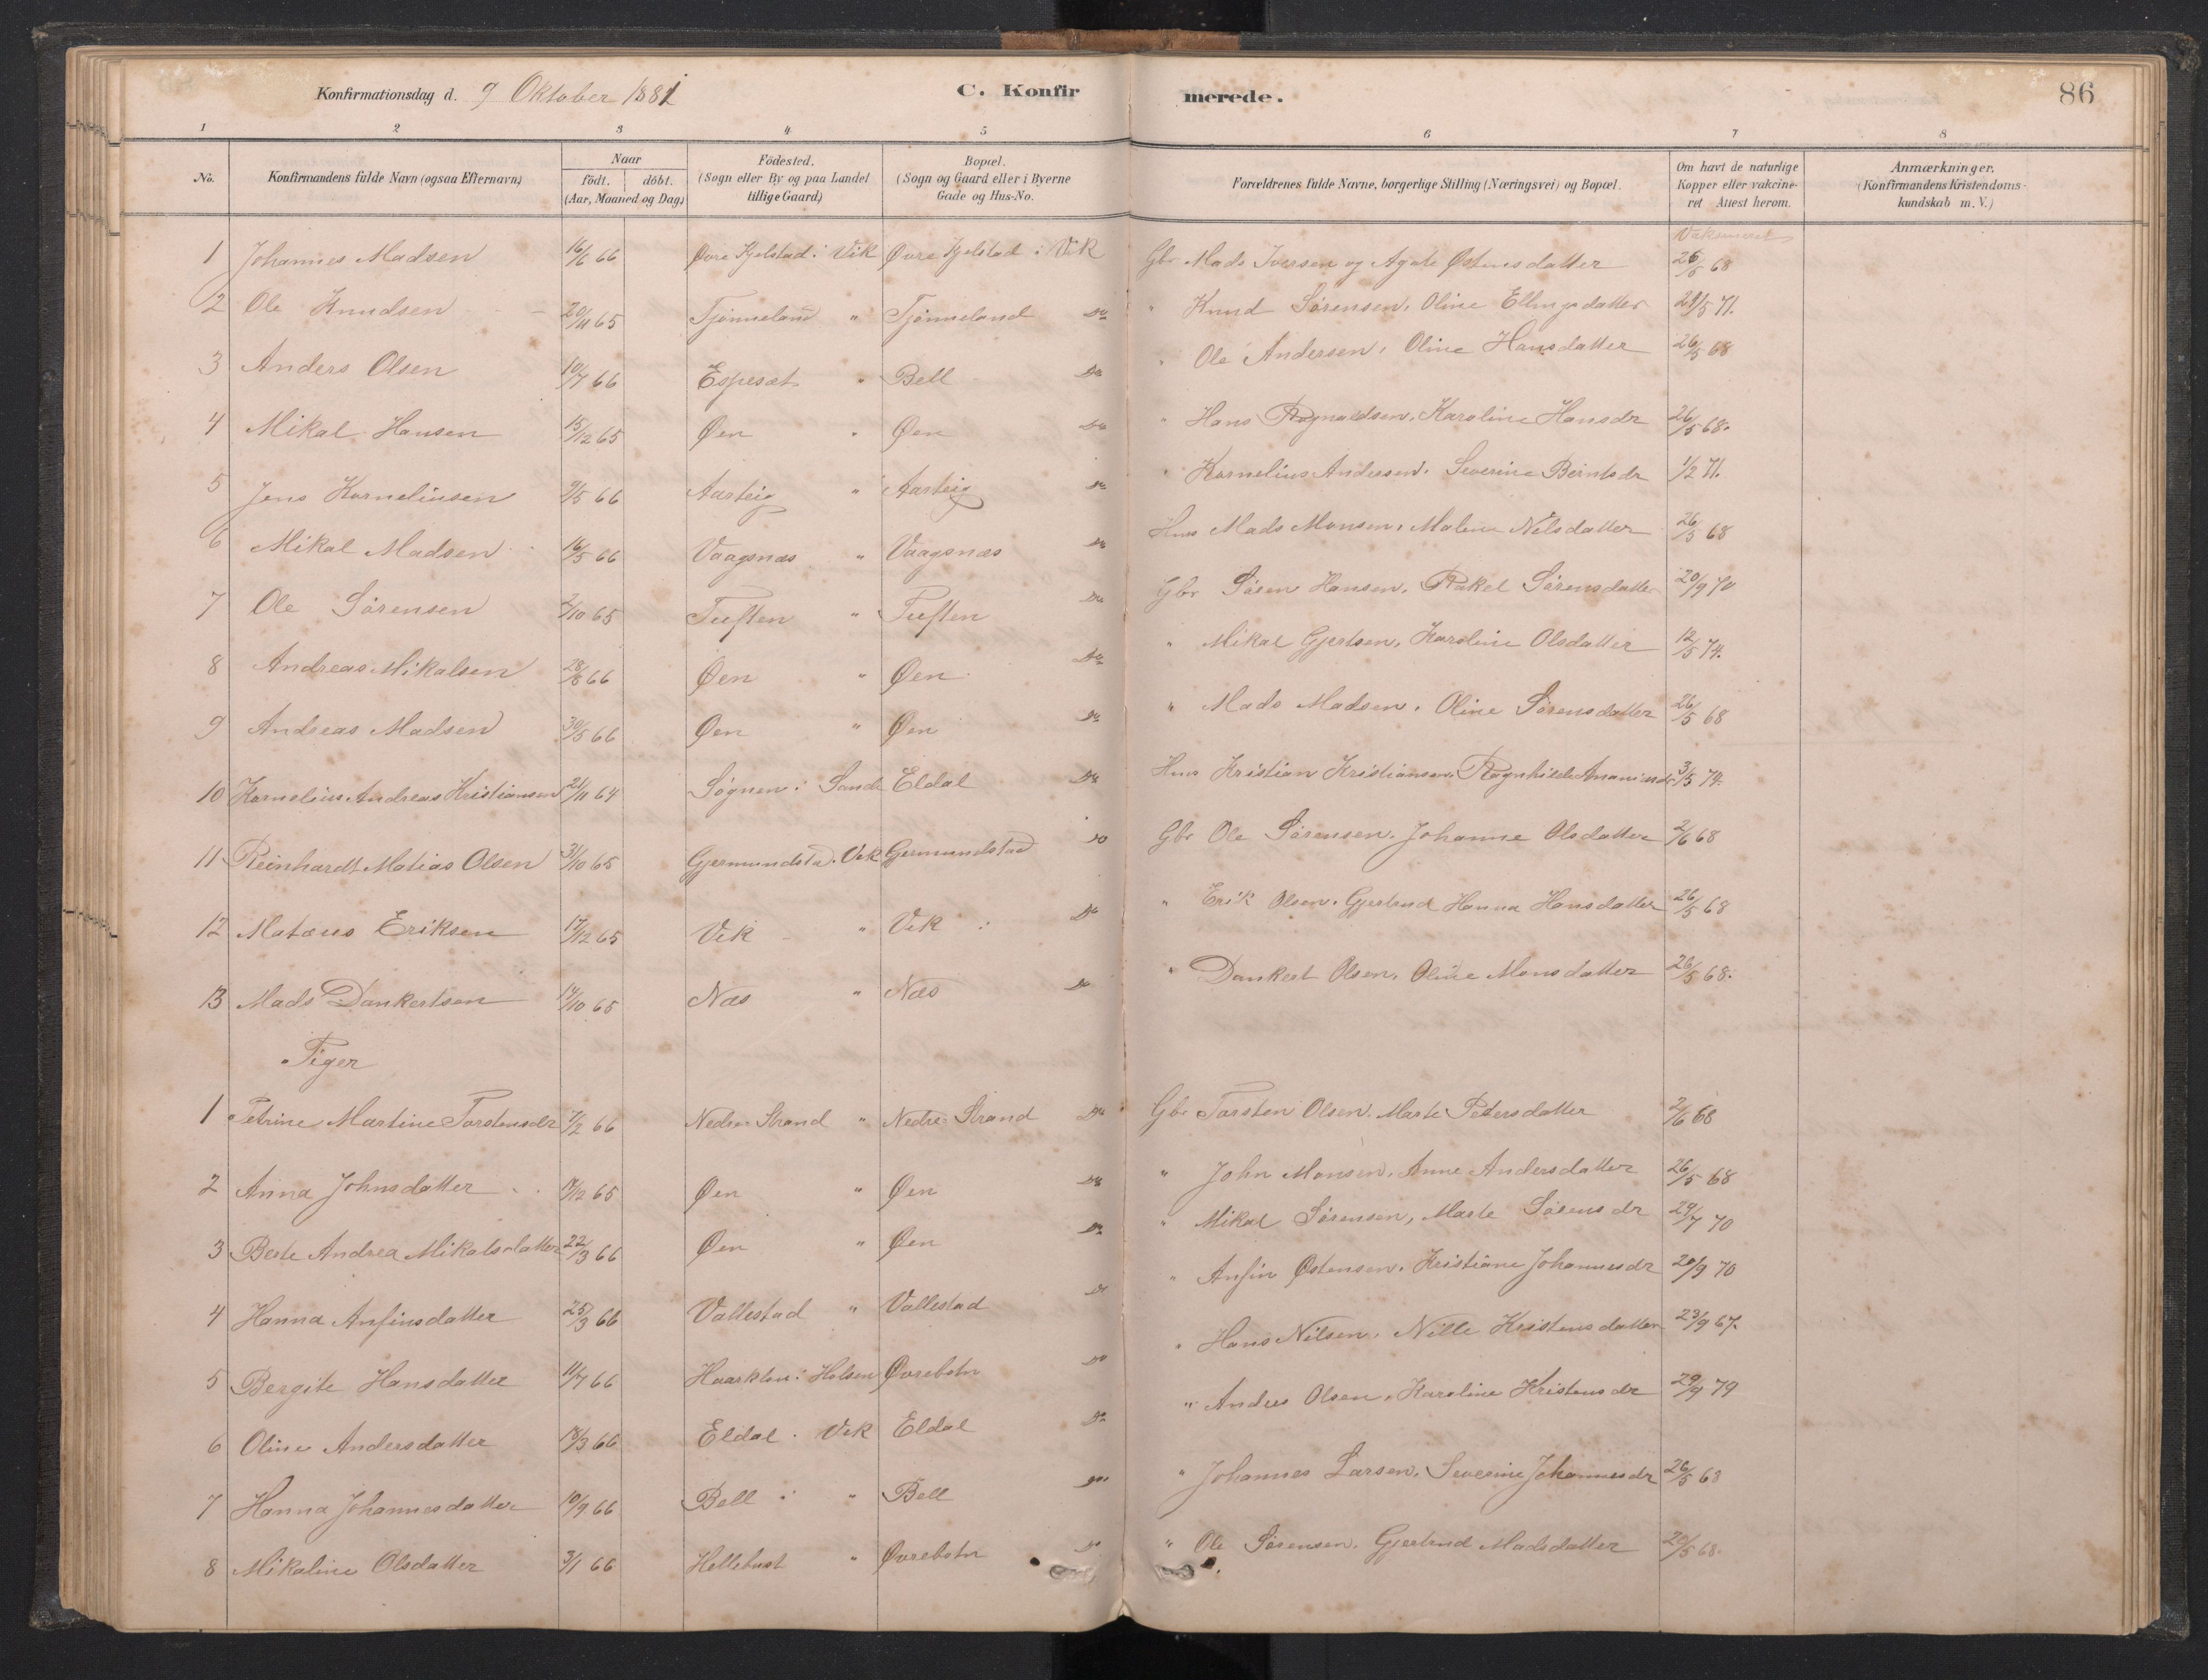 Konfirmationsdag d. 9 Oktober 1881
C. Konfirmerede.
86
1 2 3 4 5 6 7 8
No.
Konfirmandens fulde Navn (ogsaa Efternavn)
Naar
födt. döbt.
(Aar, Maaned og Dag)
Födested.
(Sogn eller By og paa Landet tillige Gaard)
Bopæl.
(Sogn og Gaard eller i Byerne Gade og Hus-No.
Forældrenes fulde Navne, borgerlige Stilling (Næringsvei) og Bopæl.
Om havt de naturlige Kopper eller vakcineret Attest herom.
Anmærkninger.
(Konfirmandens Kristendomskundskab m. V.)
1 Johannes Madsen 16/6 66 Øvre Kjelstad i Vik Øvre Kjelstad i Vik Gbr Mads Iversen og Agate Østensdatter 26/5 68
2 Ole Knudsen 20/11 65 Tjønneland " Tjønneland Do " Knud Sørensen, Oline Ellingsdatter 21/5 71.
3 Anders Olsen 10/7 66 Espesæt " Bell Do " Ole Andersen, Oline Hansdatter 26/5 68
4 Mikal Hansen 15/12 65 Øen " Øen Do " Hans Ragnaldsen, Karoline Hansdr 26/5 68.
5 Jens Korneliusen 9/5 66 Aarteig " Aarteig Do " Kornelius Andersen, Severine Berntsdr 1/2 71.
6 Mikal Madsen 16/5 66 Vaagsnæs " Vaagsnæs Do Hms Mads Monsen, Malene Nilsdatter 26/5 68
7 Ole Sørensen 2/10 65 Tueften " Tueften Do Gbr Søren Hansen, Rakel Sørensdatter 20/9 70
8 Andreas Mikalsen 28/8 66 Øen " Øen Do " Mikal Gjertsen, Karoline Olsdatter 12/5 74.
9 Andreas Madsen 30/5 66 Øen " Øen Do " Mads Madsen, Oline Sørensdatter 26/5 68
10 Kornelius Andreas Kristiansen 21/11 64 Søgnen i Sande Eldal Do Hms Kristian Kristiansen, Ragnhilde Ananiasdr 3/5 74.
11 Reinhardt Matias Olsen 31/10 65 Gjermundsta. Vik Gjermundstad Do Gbr Ole Sørensen, Johanne Olsdatter 2/6 68
12 Matæus Eriksen 17/12 65 Vik " Vik i Do " Erik Olsen, Gjertrud Hanna Hansdatter 26/5 68
13 Mads Dankertsen 14/10 65 Næs " Næs Do " Dankert Olsen, Oline Monsdatter 26/5 68.
Piger
1 Petrine Martine Torstensdr 7/2 66 Nedre Strand " Nedre Strand Do Gbr Torsten Olsen, Marte Petersdatter 2/6 68
2 Anna Johnsdatter 17/12 65 Øen " Øen Do " John Monsen, Anne Andersdatter 26/5 68
3 Berte Andrea Mikalsdatter 22/3 66 Øen " Øen Do " Mikal Sørensen, Marte Sørensdr 29/7 70
4 Hanna Anfinsdatter 25/3 66 Vallestad " Vallestad Do " Anfin Østensen, Kristiane Johannesdr 20/9 70
5 Bergite Hansdatter 11/7 66 Haarklau i Holsen Øvrebotn Do " Hans Nilsen, Nille Kristensdatter 23/9 67.
6 Oline Andersdatter 18/3 66 Eldal . Vik Eldal Do " Anders Olsen, Karoline Kristensdr 29/9 79
7 Hanna Johannesdatter 10/9 66 Bell i " Bell Do " Johannes Larsen, Severine Johannesdr 26/5 68
8 Mikaline Olsdatter 3/1 66 Hellebust " Øvrebotn Do " Ole Sørensen, Gjertrud Madsdatter 20/5 68.